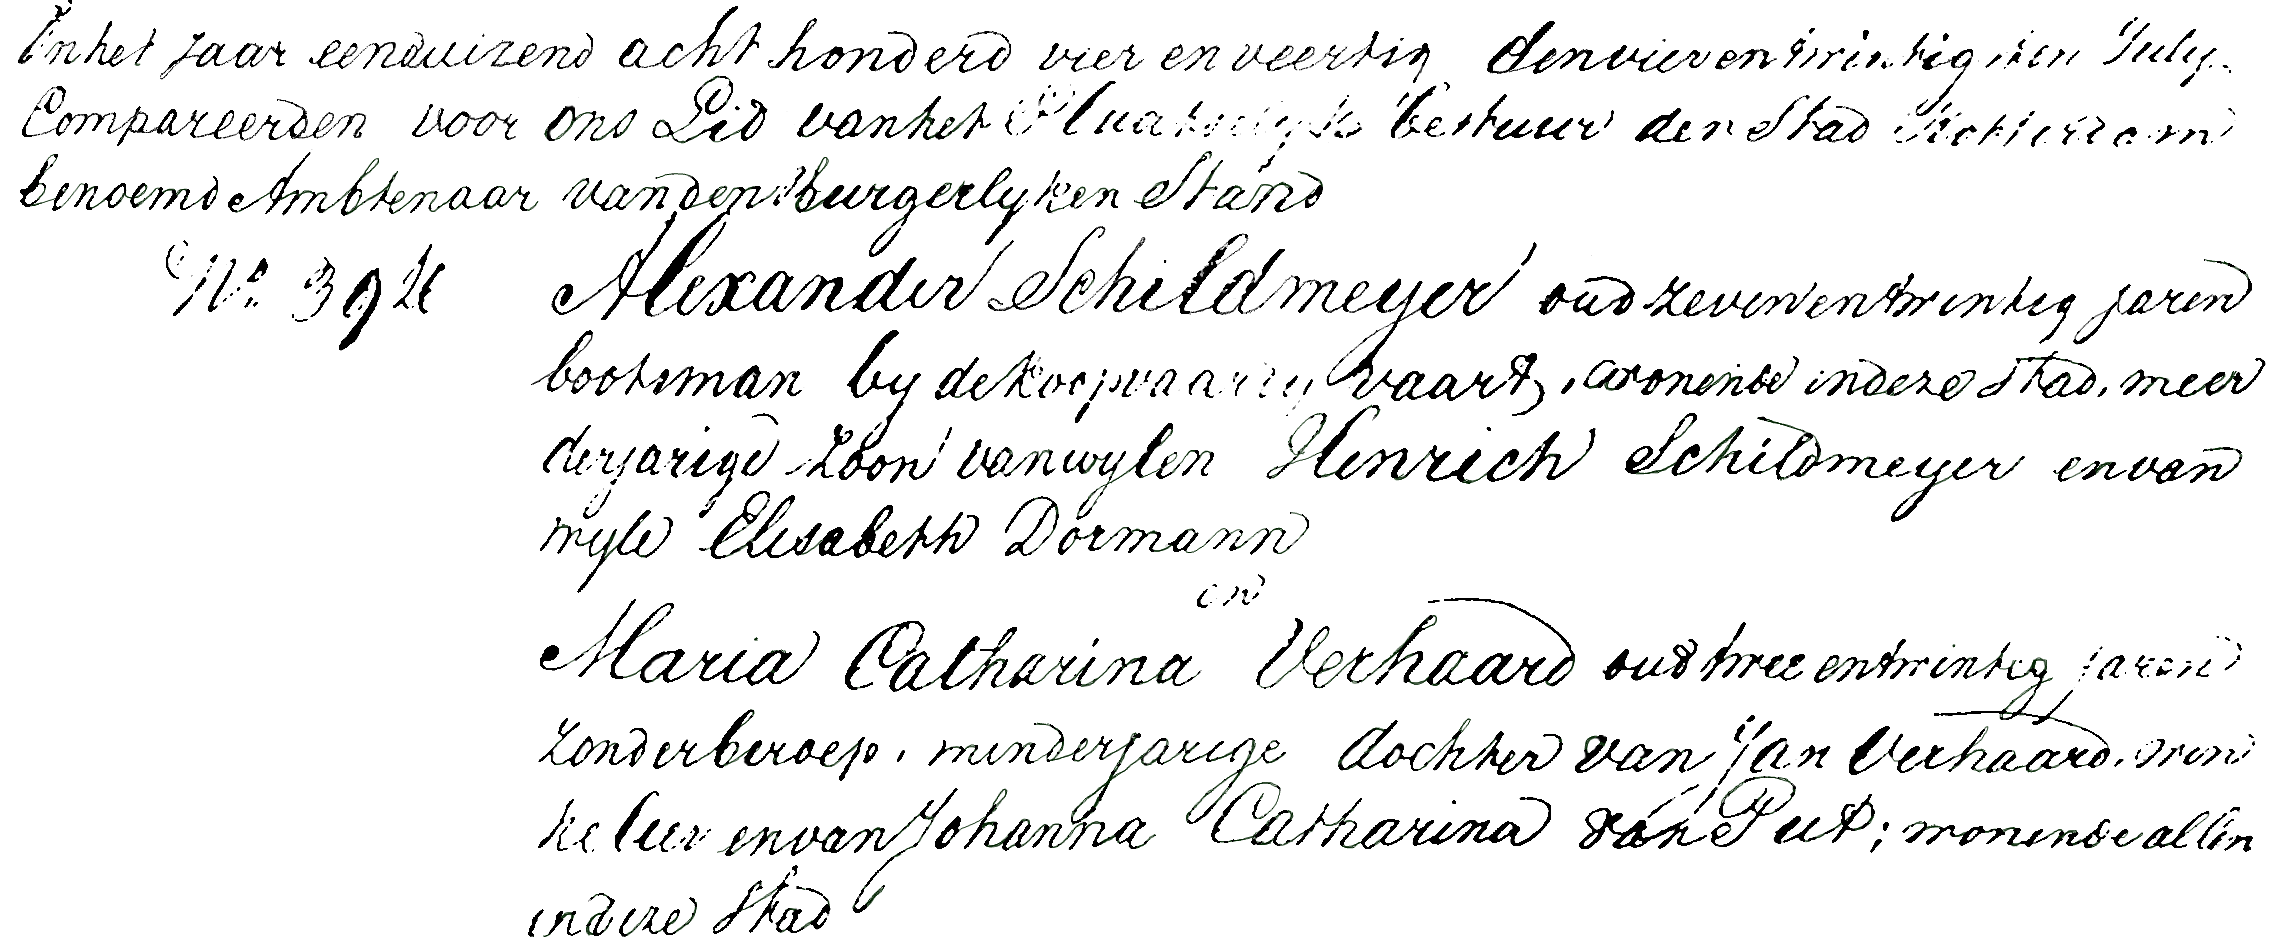 In het jaar eenduizend acht honderd vier en veertig den vier en twintigsten July
Compareerden voor ons Lid van het Plaatselyk bestuur der Stad Rotterdam
benoemd Ambtenaar van den burgerlyken Stand
No. 392
Alexander Schildmeyer oud zeven en twintig jaren
bootsman by de Koopvaardy vaart, wonende in deze Stad, meer
derjarige zoon van wylen Henrich Schildmeyer en van
wyle Elisabeth Dormann
en
Maria Catharina Verhaard oud twee en twintig jaren
zonder beroep, minderjarige dochter van Jan Verhaard, win
kelier en van Johanna Catharina van Put; wonende allen
in deze Stad